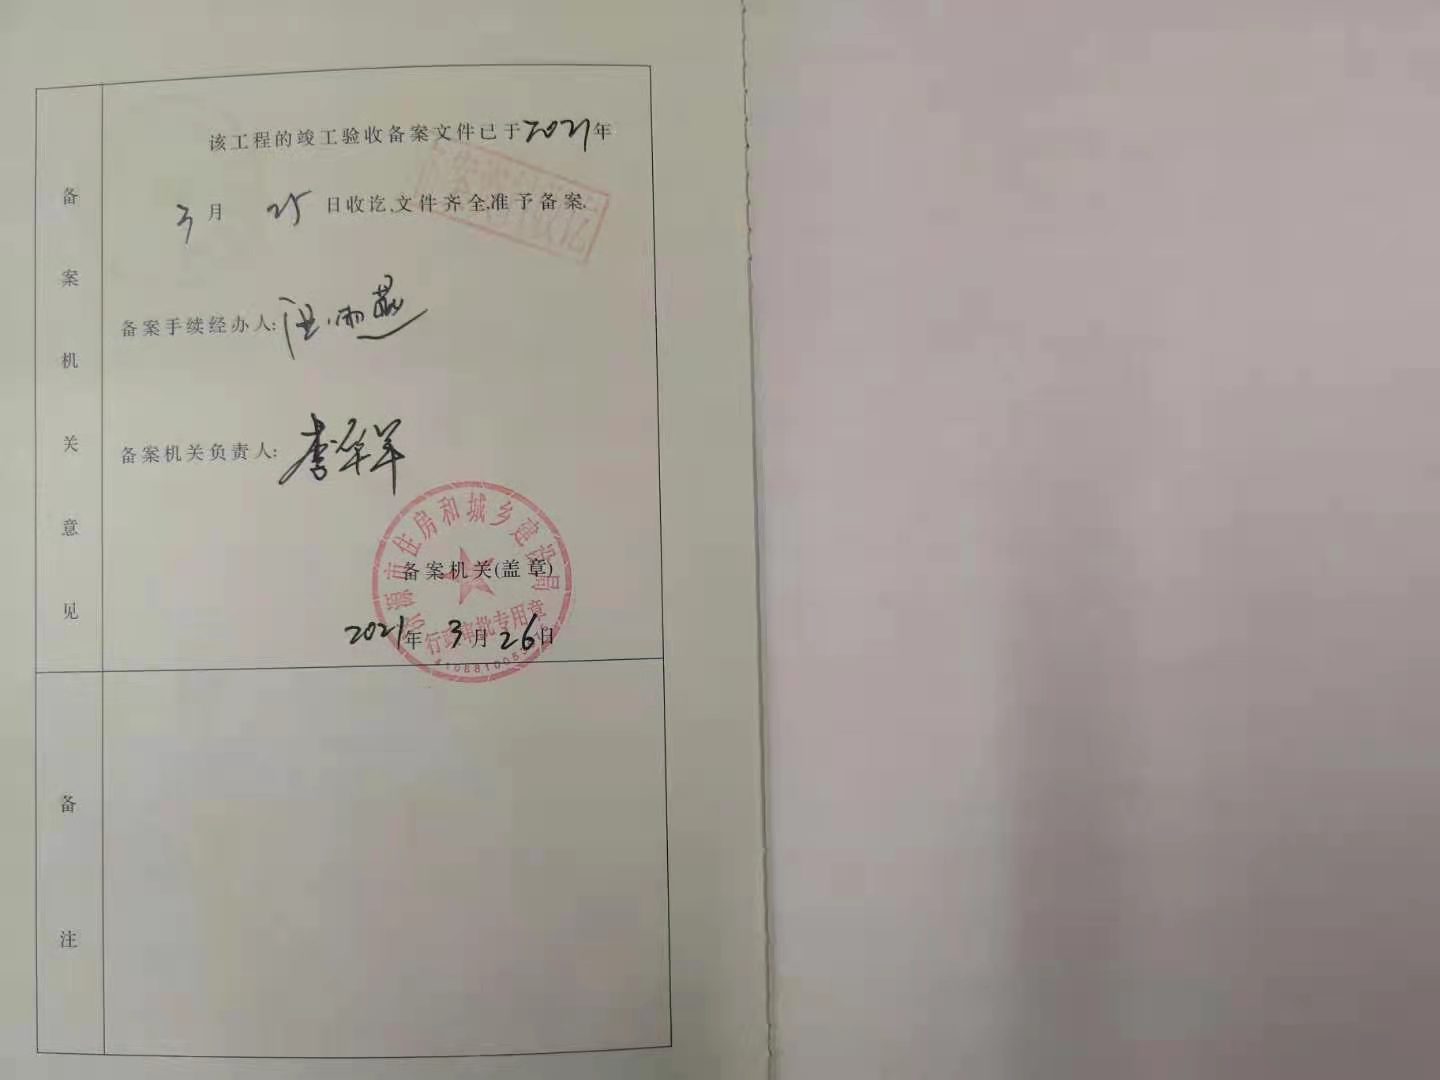 备案机关意见
该工程的竣工验收备案文件已于2021年
3月 25 日收讫,文件齐全,准予备案.
备案手续经办人:
备案机关负责人: 李军军
济源市住房和城乡建设局
备案机关(盖章)
行政审批专用章
2021年 3月 26日
备注